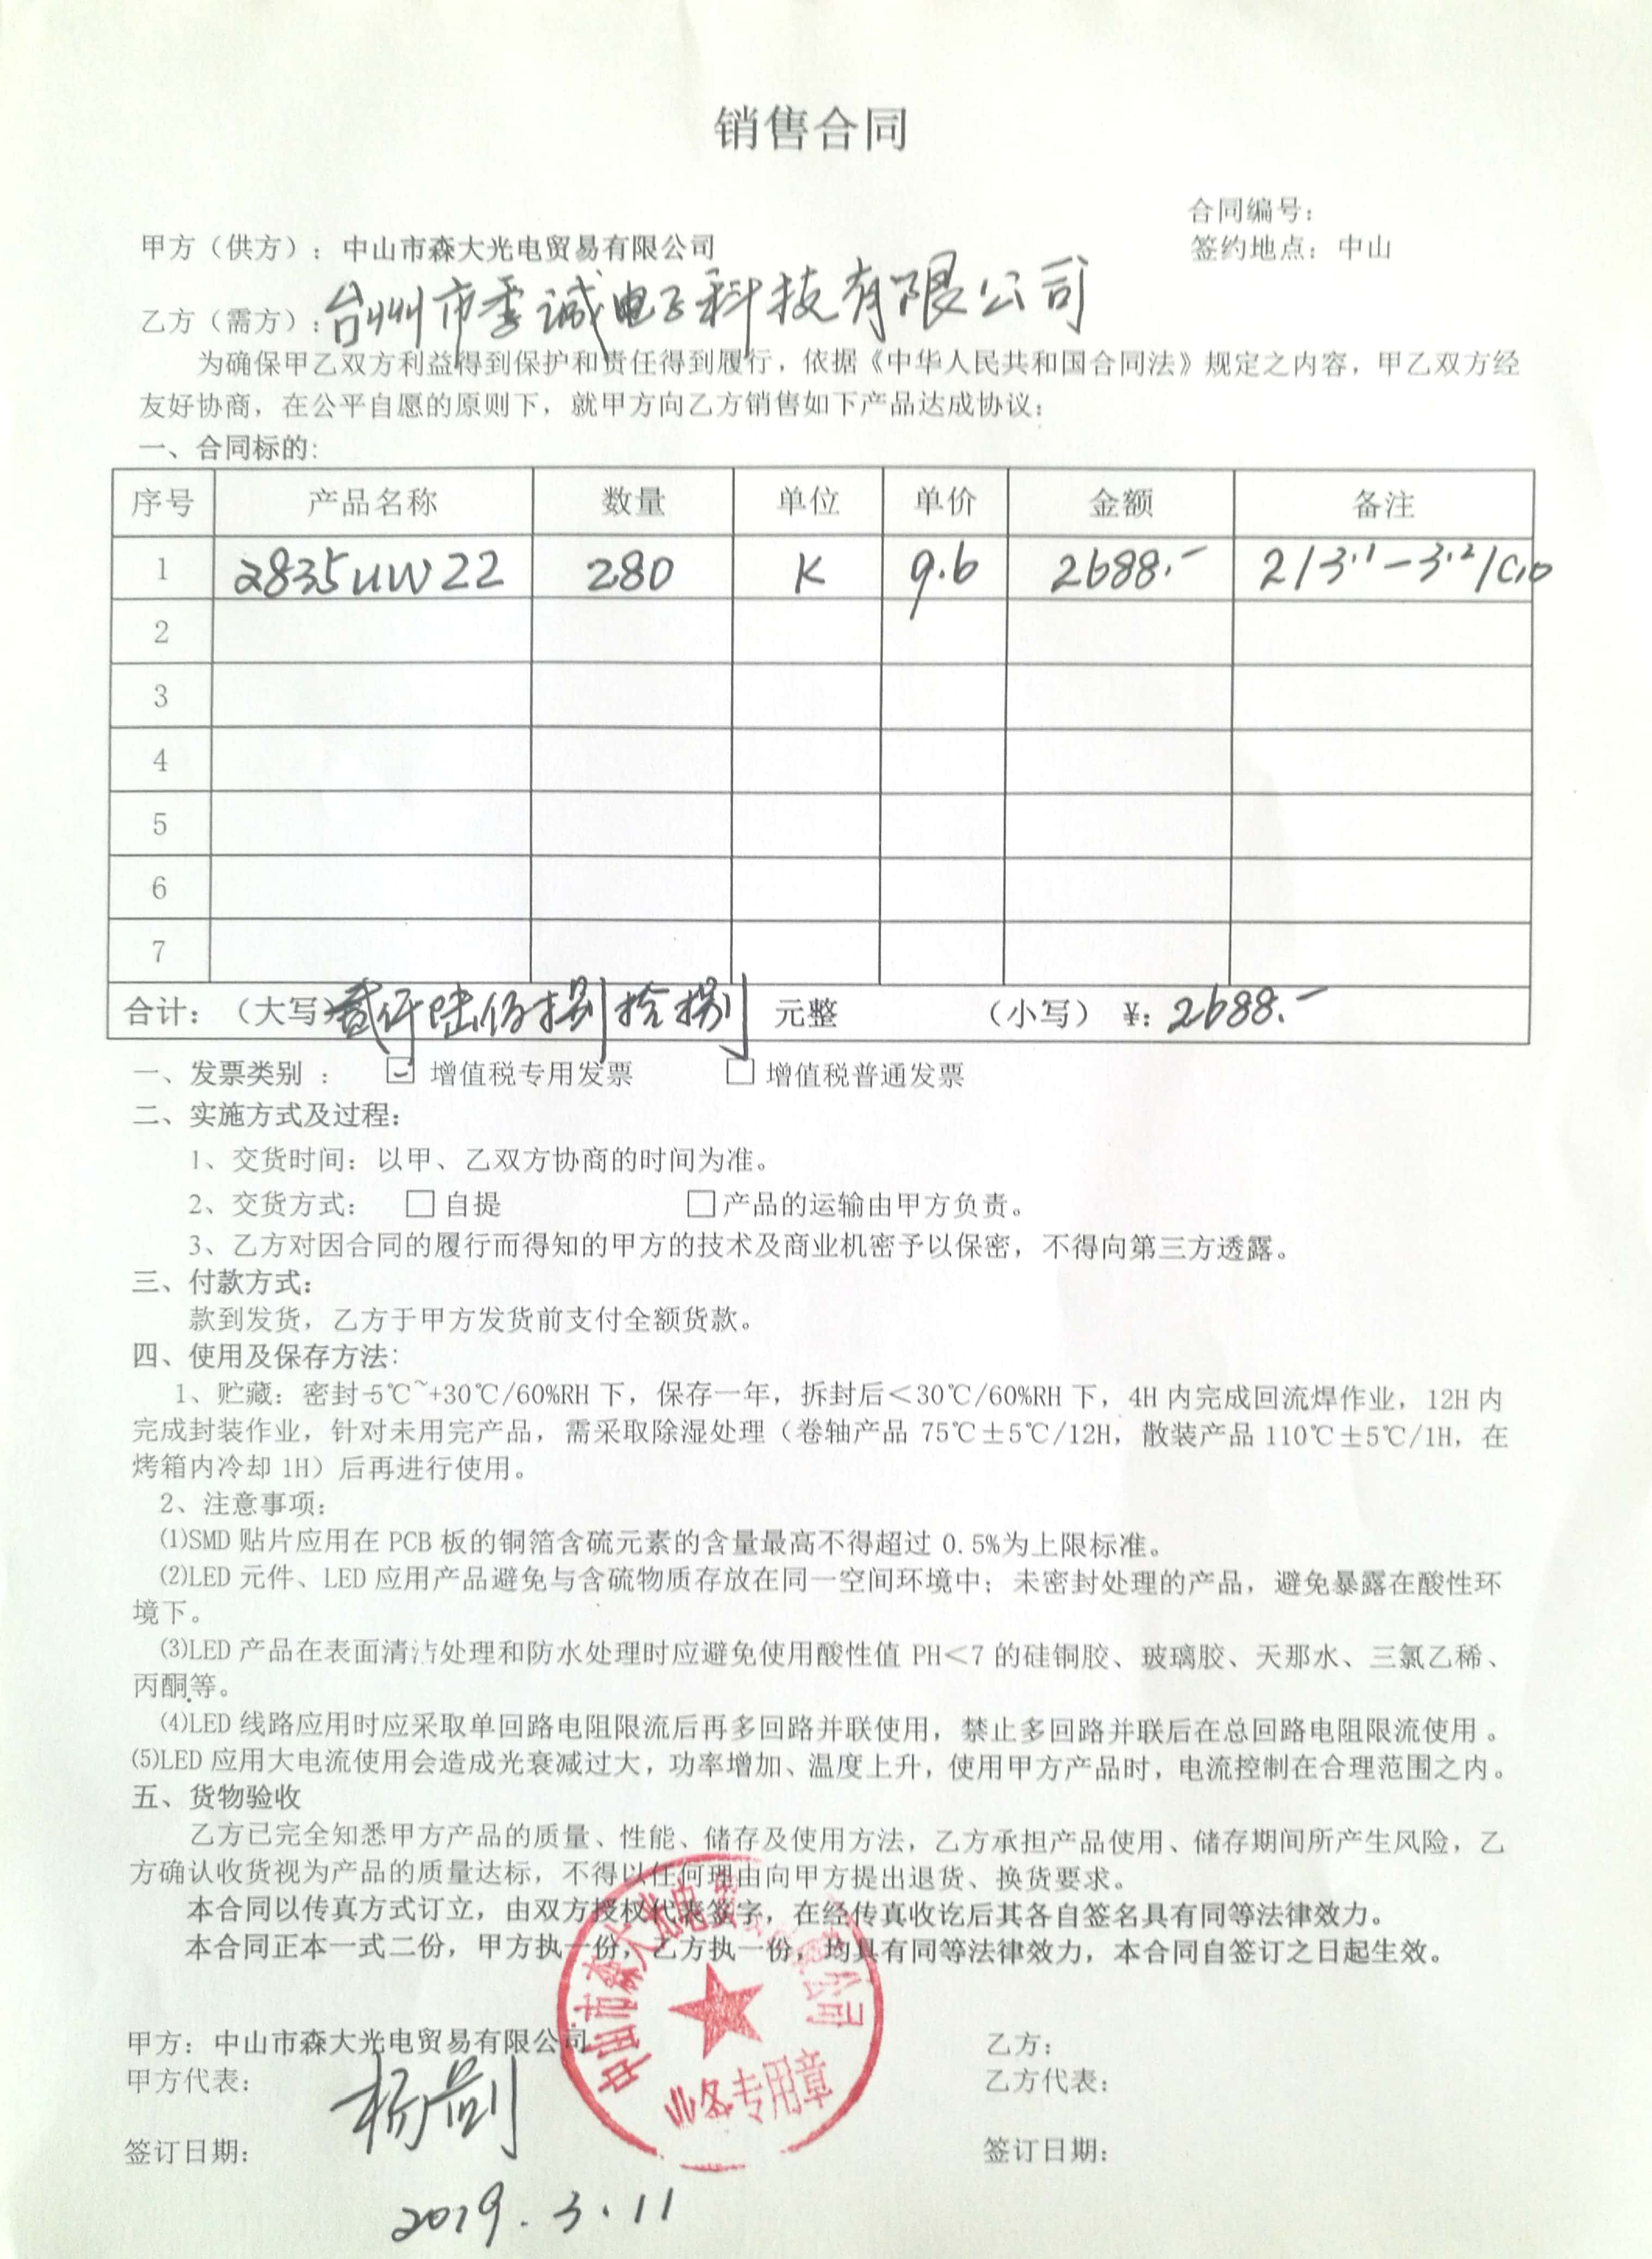 销售合同
合同编号：
甲方（供方）：中山市森大光电贸易有限公司
签约地点：中山
乙方（需方）：台州市季诚电子科技有限公司
为确保甲乙双方利益得到保护和责任得到履行，依据《中华人民共和国合同法》规定之内容，甲乙双方经
友好协商，在公平自愿的原则下，就甲方向乙方销售如下产品达成协议：
一、合同标的：
序号 产品名称 数量 单位 单价 金额 备注
1 2835UW22 280 K 9.6 2688.- 2/3.1-3.2/C10
2
3
4
5
6
7
合计：（大写）贰仟陆佰捌拾捌 元整 （小写）￥：2688.-
一、发票类别 ： ☑ 增值税专用发票 □ 增值税普通发票
二、实施方式及过程：
1、交货时间：以甲、乙双方协商的时间为准。
2、交货方式： □ 自提 □ 产品的运输由甲方负责。
3、乙方对因合同的履行而得知的甲方的技术及商业机密予以保密，不得向第三方透露。
三、付款方式：
款到发货，乙方于甲方发货前支付全额货款。
四、使用及保存方法：
1、贮藏：密封-5℃~+30℃/60%RH 下，保存一年，拆封后＜30℃/60%RH 下，4H 内完成回流焊作业，12H 内
完成封装作业，针对未用完产品，需采取除湿处理（卷轴产品 75℃±5℃/12H，散装产品 110℃±5℃/1H，在
烤箱内冷却 1H）后再进行使用。
2、注意事项：
⑴SMD 贴片应用在 PCB 板的铜箔含硫元素的含量最高不得超过 0.5%为上限标准。
⑵LED 元件、LED 应用产品避免与含硫物质存放在同一空间环境中；未密封处理的产品，避免暴露在酸性环
境下。
⑶LED 产品在表面清洁处理和防水处理时应避免使用酸性值 PH＜7 的硅铜胶、玻璃胶、天那水、三氯乙稀、
丙酮等。
⑷LED 线路应用时应采取单回路电阻限流后再多回路并联使用，禁止多回路并联后在总回路电阻限流使用 。
⑸LED 应用大电流使用会造成光衰减过大，功率增加、温度上升，使用甲方产品时，电流控制在合理范围之内。
五、货物验收
乙方已完全知悉甲方产品的质量、性能、储存及使用方法，乙方承担产品使用、储存期间所产生风险，乙
方确认收货视为产品的质量达标，不得以任何理由向甲方提出退货、换货要求。
本合同以传真方式订立，由双方授权代表签字，在经传真收讫后其各自签名具有同等法律效力。
本合同正本一式二份，甲方执一份，乙方执一份，均具有同等法律效力，本合同自签订之日起生效。
中山市森大光电贸易有限公司
业务专用章
甲方：中山市森大光电贸易有限公司
乙方：
甲方代表：杨剑
乙方代表：
签订日期：
签订日期：
2019.3.11